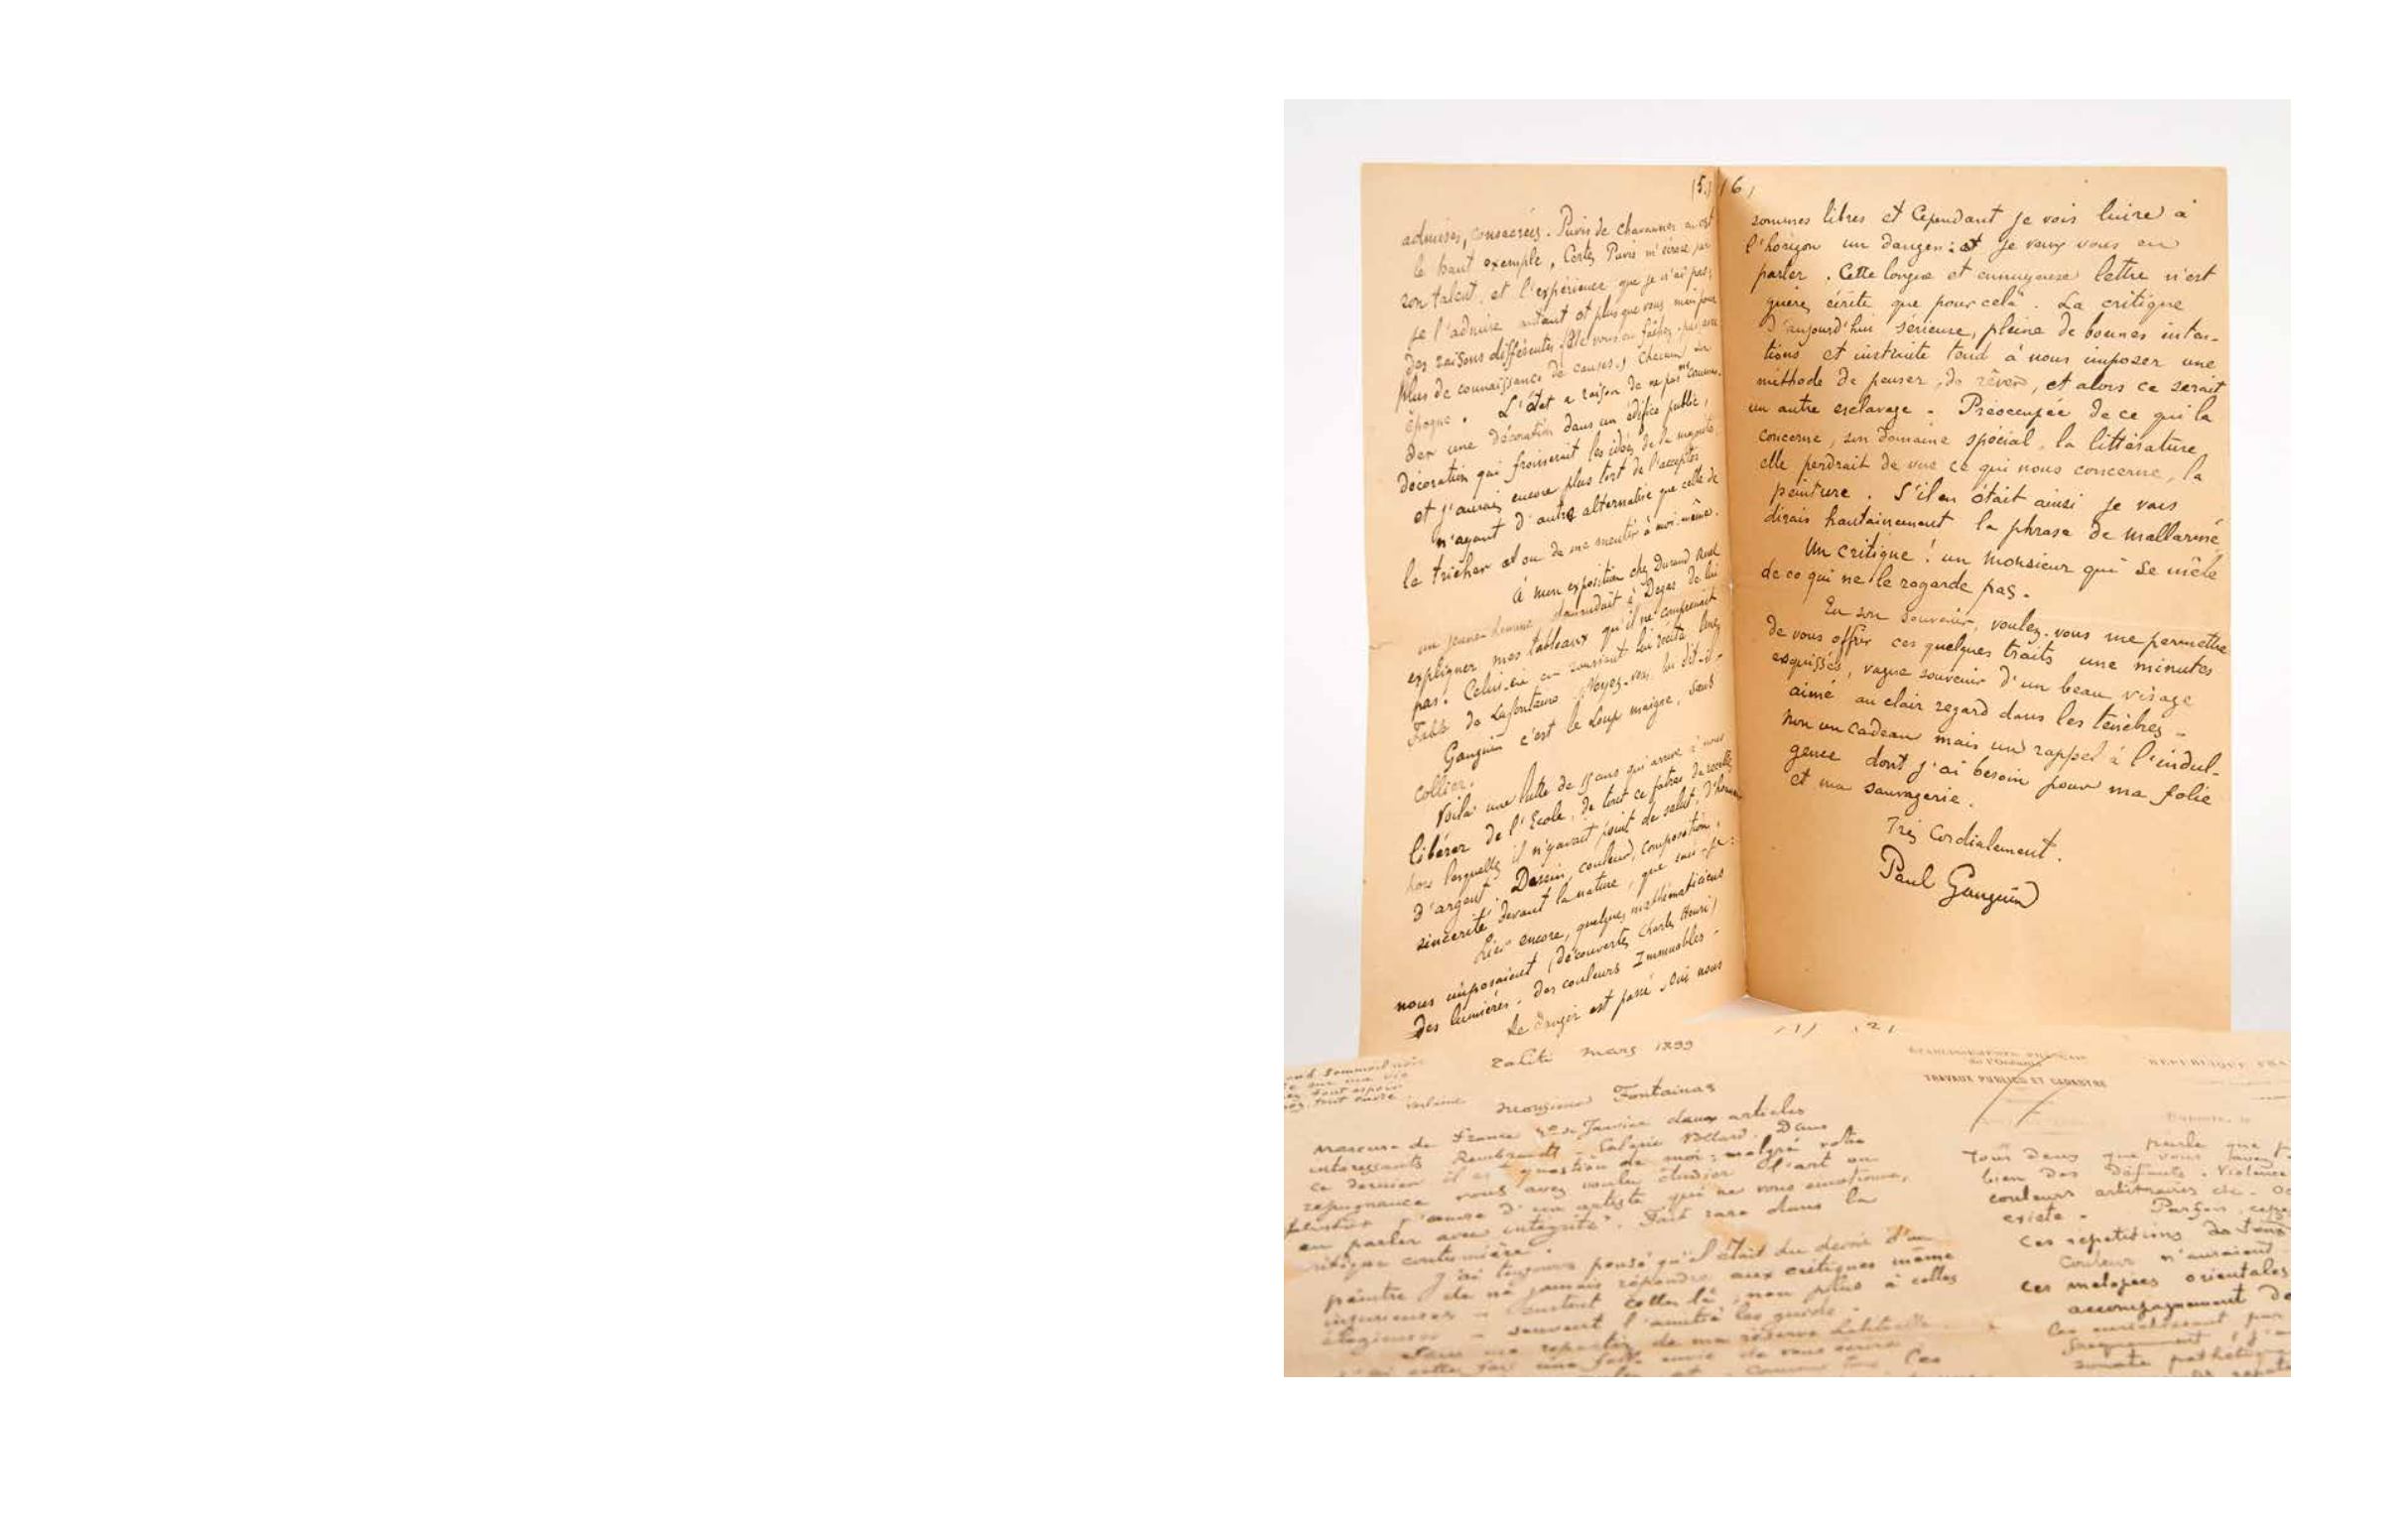 (5.)
admises, consacrées. Puvis de Chavannes en est
le haut exemple, Certes Puvis m'écrase par
son talent, et l'expérience que je n'ai pas;
je l'admire autant et plus que vous mais pour
des raisons différentes (Ne vous en fâchez, pas avec
plus de connaissance de causes.) Chacun son
époque. L'état a raison de ne pas me comman-
der une décoration dans un édifice public,
décoration qui froisserait les idées de la majorité,
et j'aurais encore plus tort de l'accepter
n'ayant d'autre alternative que celle de
le tricher et ou de me mentir à moi-même.
à mon exposition chez Durand Ruel
un jeune homme demandait à Degas de lui
expliquer mes tableaux qu'il ne comprenait
pas. Celui-ci en souriant lui récita une
Fable de Lafontaine. Voyez-vous, lui dit-il -
Gauguin c'est le Loup maigre, sans
collier.
Voilà une lutte de 15 ans qui arrive à nous
libérer de l'Ecole, de tout ce fatras de recettes
hors lesquelles il n'y avait point de salut, d'honneur
d'argent. Dessin, couleur, composition,
sincerité devant la nature, que sais-je:
Hier encore, quelques mathématiciens
nous imposaient (découvertes Charles Henri)
des lumières. des couleurs Immuables -
Le danger est passé. Oui nous
(6)
sommes libres et Cependant je vois luire à
l'horizon un danger: et je veux vous en
parler. Cette longue et ennuyeuse lettre n'est
guère écrite que pour celà. La critique
d'aujourd'hui sérieuse, pleine de bonnes inten-
tions et instruite tend à nous imposer une
méthode de penser, de rêver, et alors ce serait
un autre esclavage - Préoccupée de ce qui la
concerne, son domaine spécial, la littérature
elle perdrait de vue ce qui nous concerne, la
peinture. S'il en était ainsi je vous
dirais hautainement la phrase de Mallarmé
Un critique! un Monsieur qui se mêle
de ce qui ne le regarde pas.
En son souvenir, voulez-vous me permettre
de vous offrir ces quelques traits une minutes
esquissés, vague souvenir d'un beau visage
aimé au clair regard dans les tenèbres -
Non un cadeau mais un rappel à l'indul-
gence dont j'ai besoin pour ma folie
et ma sauvagerie.
Très Cordialement.
Paul Gauguin
(1)
Tahiti mars 1899
sommeil noir
sur ma vie
tout espoir
tout envie
Verlaine
Monsieur Fontainas
Mercure de France Janvier deux articles
interessants Rembrandt - Galerie Vollard. Dans
ce dernier il est question de moi: malgré votre
repugnance vous avez voulu étudier l'art ou
plutôt l'œuvre d'un artiste qui ne vous emotionne,
en parler avec intégrité. Fait rare dans la
critique coutumière.
J'ai toujours pensé qu'il était du devoir d'un
peintre de ne jamais répondre aux critiques même
injurieuses - surtout celles là, non plus à celles
élogieuses - souvent l'amitié les guide.
Sans me départir de ma réserve habituelle
j'ai cette fois une folle envie de vous écrire
(2)
ÉTABLISSEMENTS FRANÇAIS
de l'Océanie
TRAVAUX PUBLICS ET CADASTRE
RÉPUBLIQUE FRA
Papeete, le
parle que
Tous deux que vous
bien des défauts. Violence
couleurs arbitraires etc.
existe - Parfois
ces répetitions de tons
Couleur n'auraient
ces melopées orientales
accompagnement de
les enrichissant par
frequemment
sonate pathétique